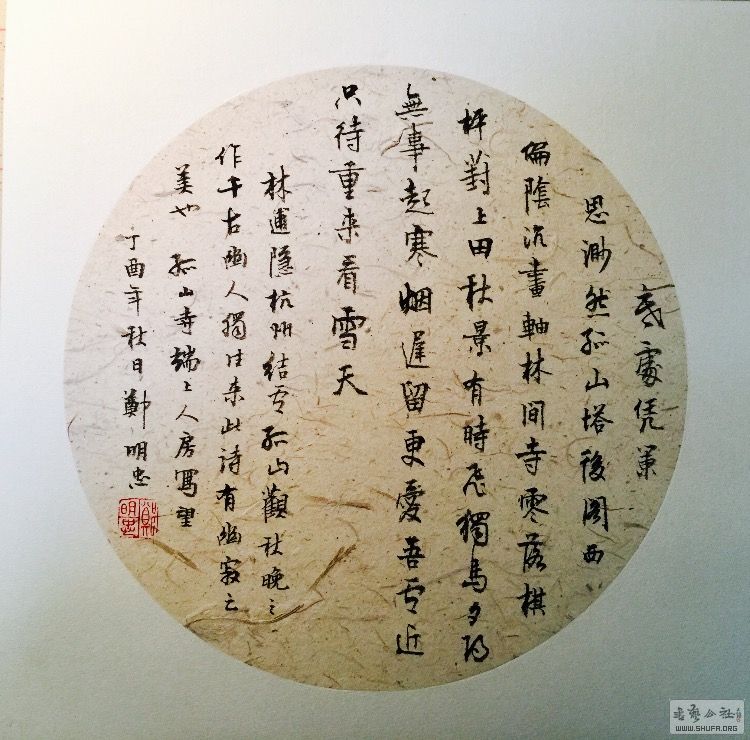 底處凭蘭
思渺然孤山塔後閣西
偏陰沉畫軸林間寺零落棋
枰葑上田秋景有時飛獨鳥夕阳
無事起寒烟遲留更愛吾庐近
只待重来看雪天
林逋隱杭州結庐孤山觀秋晚之
作千古幽人獨往来此詩有幽寂之
美也 孤山寺端上人房寫望
丁酉年秋日鄭明忠
鄭明忠
書藝公社
WWW.SHUFA.ORG